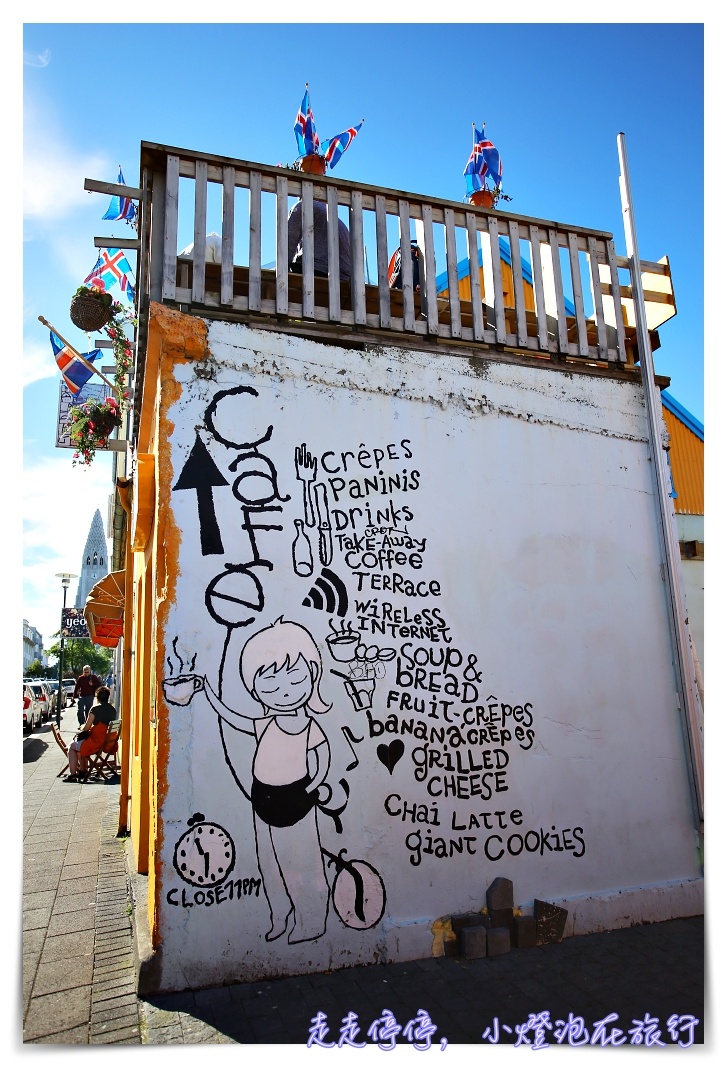 Café
crêpes
Paninis
Drinks
Take-Away
coffee
Terrace
wireless
internet
soup &
bread
fruit-crêpes
bananacrêpes
grilled
cheese
chai latte
giant cookies
CLOSE 11PM
yeo
走走停停, 小燈泡在旅行